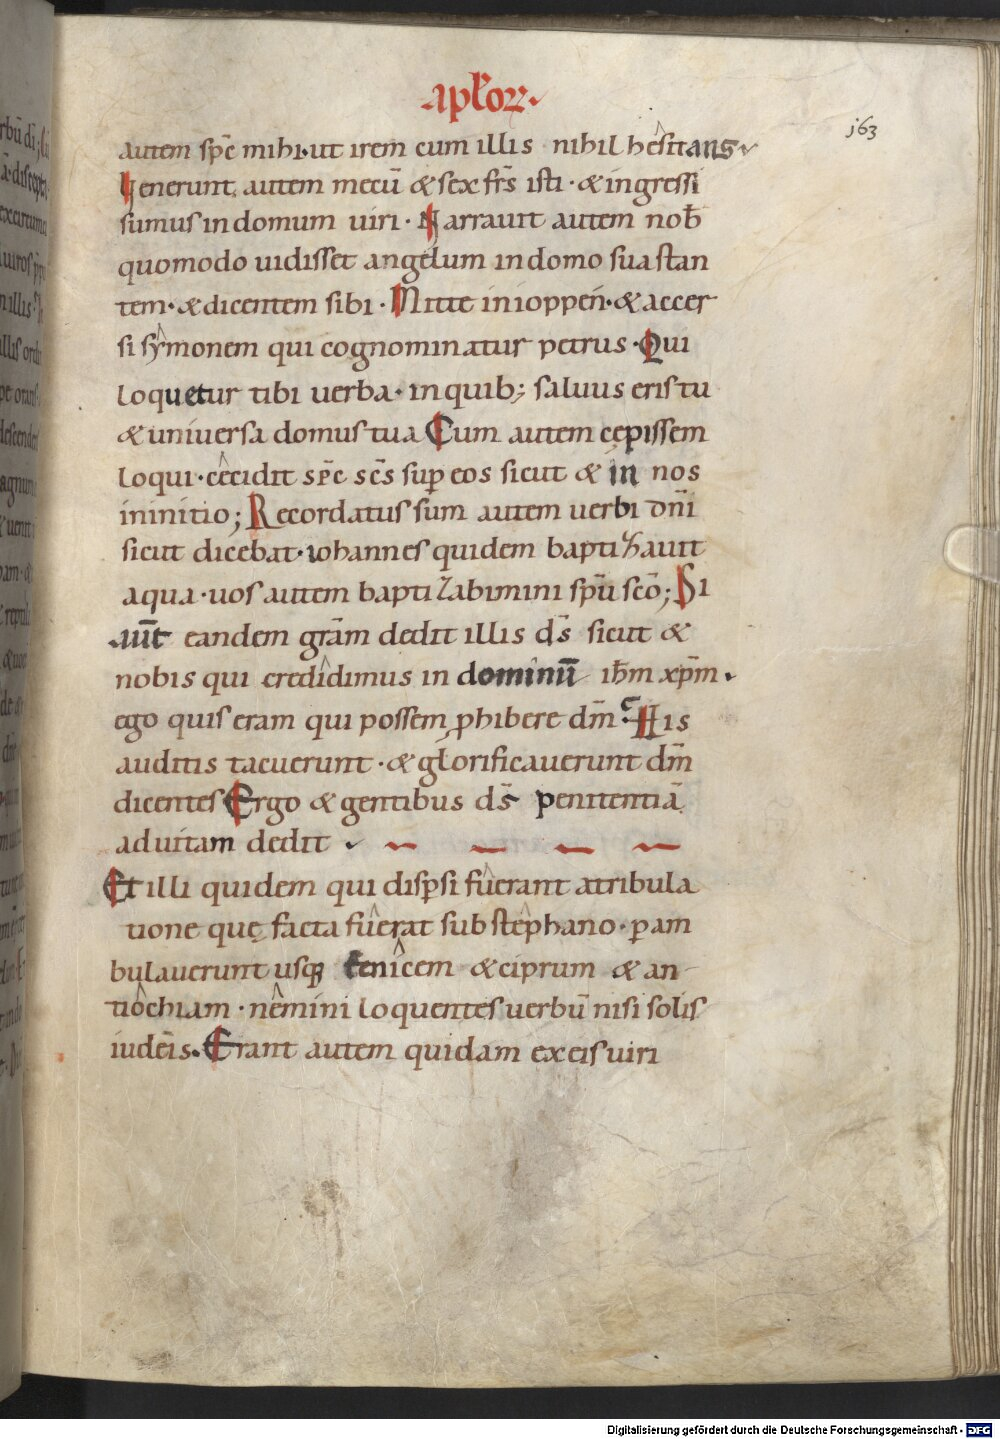 aplꝛoꝝ
163
autem spc̄ mihi· ut irem cum illis nihil hesitans
Venerunt autem mecū & sex fr̄s isti · & ingressi
sumus in domum uiri · Narrauit autem nob̄
quomodo uidisset angelum in domo sua stan
tem · & dicentem sibi · Mitte in ioppen · & accer
si symonem qui cognominatur petrus · Qui
loquetur tibi uerba · in quib; saluus eris tu
& uniuersa domus tua Cum autem cępissem
loqui · cecidit spc̄ scs̄ sup̄ eos sicut & in nos
in initio; Recordatus sum autem uerbi dn̄i
sicut dicebat · iohannes quidem baptizauit
aqua · uos autem baptizabimini spū scō; Si
aūt eandem grām dedit illis ds̄ sicut &
nobis qui credidimus in dominū ihm̄ xpm̄ ·
ego quis eram qui possem ꝓhibere dm̄ His
auditis tacuerunt · & glorificauerunt dm̄
dicentes Ergo & gentibus ds̄ penitentiā
ad uitam dedit
Et illi quidem qui disp̄si fuerant a tribula
tione quę facta fuerat sub stephano · p̄am
bulauerunt usq; fenicem & ciprum & an
tiochiam · nemini loquentes uerbū nisi solis
iudeis · Erant autem quidam ex eis uiri
Digitalisierung gefördert durch die Deutsche Forschungsgemeinschaft - DFG